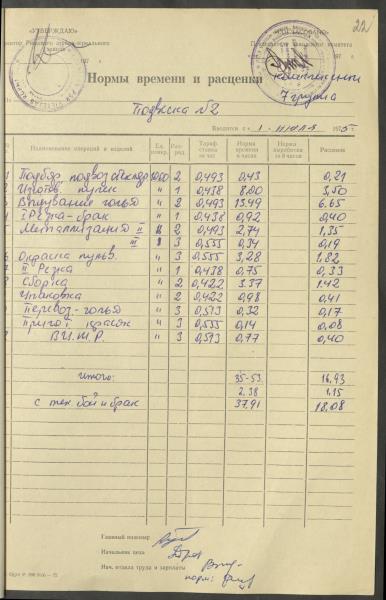 22
«УТВЕРЖДАЮ»
«СОГЛАСОВАНО»
197 г.
197 г.
Нормы времени и расценки
комплексные
7 группа
Подвеска №2
Вводится с „1“ июля 1975 г.
Наименование операций и изделий Ед. измер. Раз-ряд Тариф. ставка за час Норма времени в часах Норма выработки за 8 часов Расценки
Подбор, подвоз со склада 1000 2 0,493 0,43 0,21
Изготов. пулек " 1 0,438 8,00 3,50
Выдувание голья " 2 0,493 13.49 6.65
I Резка-брак " 1 0,438 0,92 0,40
Металлизация II " 2 0,493 2,74 1,35
III " 3 0,555 0,34 0,19
Окраска пульв. " 3 0,555 3,28 1.82
II Резка " 1 0,438 0,75 0,33
Сборка " 2 0,422 3.37 1.42
Упаковка " 2 0,422 0,98 0,41
Перевоз-голья " 3 0,513 0,32 0,17
Пригот красок " 3 0,555 0,14 0,08
" 3 0,513 0,77 0,40
Итого: 35-53 16.93
2.38 1.15
с тех. бой и брак 37.91 18,08
Главный инженер
Начальник цеха
Нач. отдела труда и зарплаты